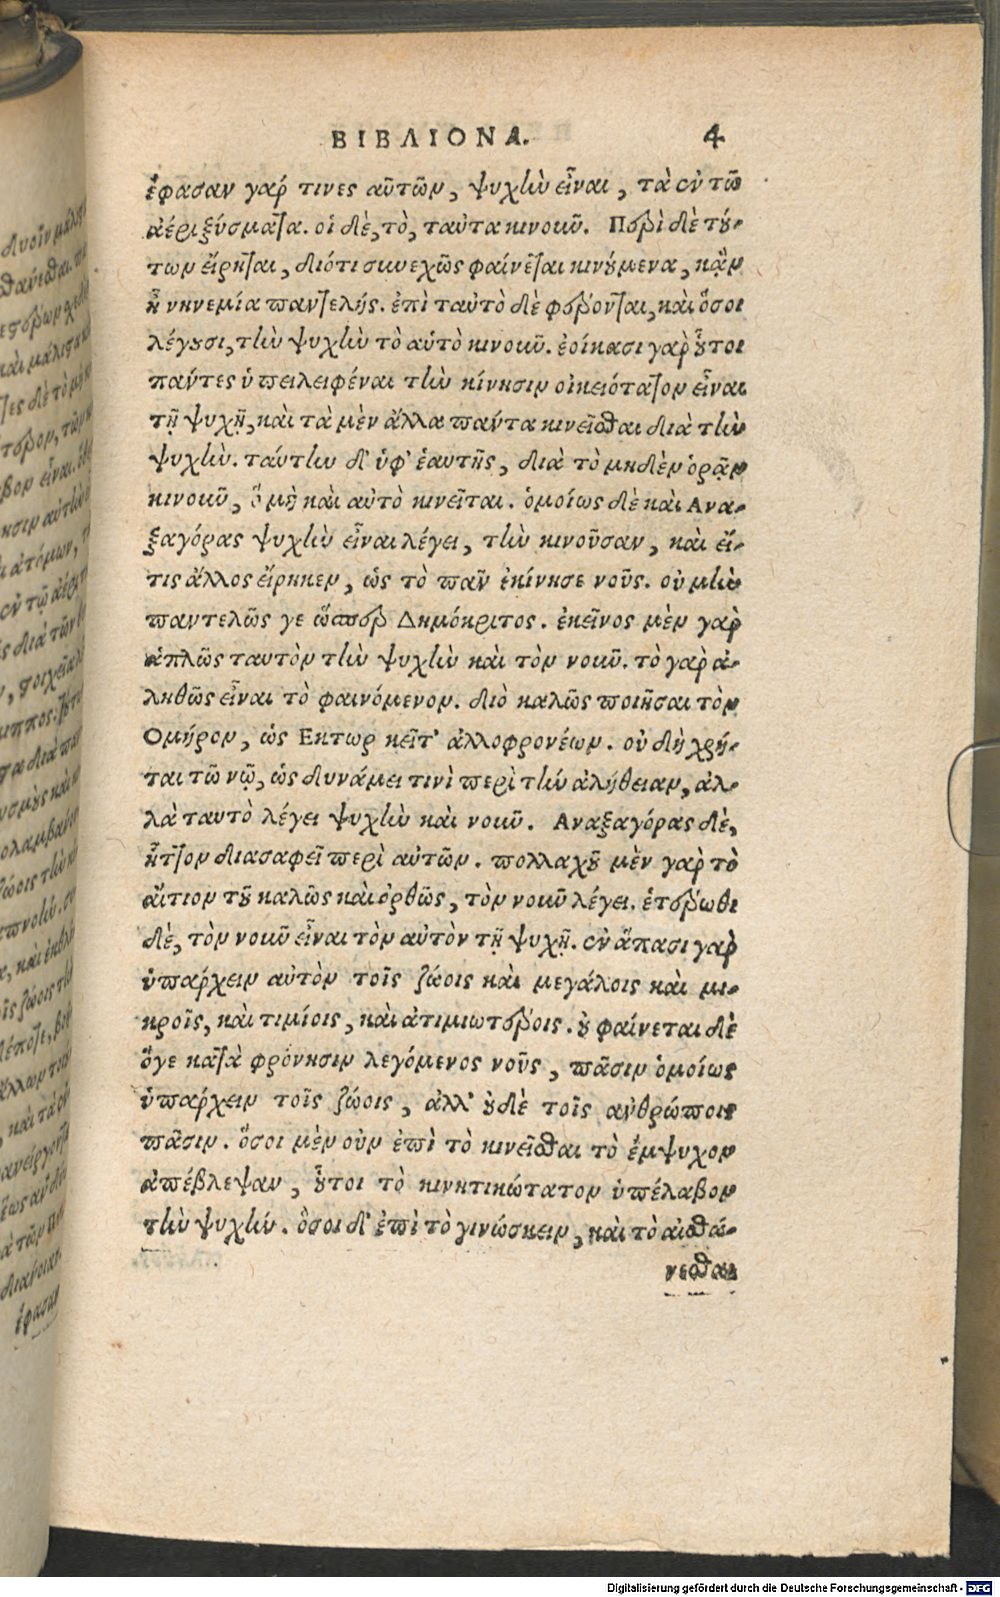 ΒΙΒΛΙΟΝ Α. 4
ἔφασαν γάρ τινες αὐτῶν, ψυχὴν εἶναι, τὰ ἐν τῷ
ἀέρι ξύσματα. οἱ δὲ, τὸ, ταῦτα κινοῦν. Περὶ δὲ τού-
των εἴρηται, διότι συνεχῶς φαίνεται κινούμενα, κἂν
ᾖ νηνεμία παντελής. ἐπὶ ταυτὸ δὲ φέρονται, καὶ ὅσοι
λέγουσι, τὴν ψυχὴν τὸ αὑτὸ κινοῦν. ἐοίκασι γὰρ οὗτοι
πάντες ὑπειλειφέναι τὴν κίνησιν οἰκειότατον εἶναι
τῇ ψυχῇ, καὶ τὰ μὲν ἄλλα πάντα κινεῖσθαι διὰ τὴν
ψυχήν. ταύτην δ' ὑφ' ἑαυτῆς, διὰ τὸ μηδὲν ὁρᾷν
κινοῦν, ὃ μὴ καὶ αὐτὸ κινεῖται. ὁμοίως δὲ καὶ Ανα-
ξαγόρας ψυχὴν εἶναι λέγει, τὴν κινοῦσαν, καὶ εἴ-
τις ἄλλος εἴρηκεν, ὡς τὸ πᾶν ἐκίνησε νοῦς. οὐ μὴν
παντελῶς γε ὥσπερ Δημόκριτος. ἐκεῖνος μὲν γὰρ
ἁπλῶς ταυτὸν τὴν ψυχὴν καὶ τὸν νοῦν. τὸ γὰρ ἀ-
ληθῶς εἶναι τὸ φαινόμενον. διὸ καλῶς ποιῆσαι τὸν
Ομήρον, ὡς Εκτωρ κεῖτ' ἀλλοφρονέων. οὐ δὴ χρῆ-
ται τῶ νῷ, ὡς δυνάμει τινὶ περὶ τὴν ἀλήθειαν, ἀλ-
λὰ ταυτὸ λέγει ψυχὴν καὶ νοῦν. Αναξαγόρας δὲ,
ἧττον διασαφεῖ περὶ αὐτῶν. πολλαχοῦ μὲν γὰρ τὸ
αἴτιον τοῦ καλῶς καὶ ὀρθῶς, τὸν νοῦν λέγει. ἑτέρωθι
δὲ, τὸν νοῦν εἶναι τὸν αὐτὸν τῇ ψυχῇ. ἐν ἅπασι γὰρ
ὑπάρχειν αὐτὸν τοῖς ζώοις καὶ μεγάλοις καὶ μι-
κροῖς, καὶ τιμίοις, καὶ ἀτιμιωτέροις. οὐ φαίνεται δὲ
ὅγε κατὰ φρόνησιν λεγόμενος νοῦς, πᾶσιν ὁμοίως
ὑπάρχειν τοῖς ζώοις, ἀλλ' οὐδὲ τοῖς ἀνθρώποις
πᾶσιν. ὅσοι μὲν οὖν ἐπὶ τὸ κινεῖσθαι τὸ ἔμψυχον
ἀπέβλεψαν, οὗτοι τὸ κινητικώτατον ὑπέλαβον
τὴν ψυχήν. ὅσοι δ' ἐπὶ τὸ γινώσκειν, καὶ τὸ αἰσθά-
νεσθαι
Digitalisierung gefördert durch die Deutsche Forschungsgemeinschaft - DFG